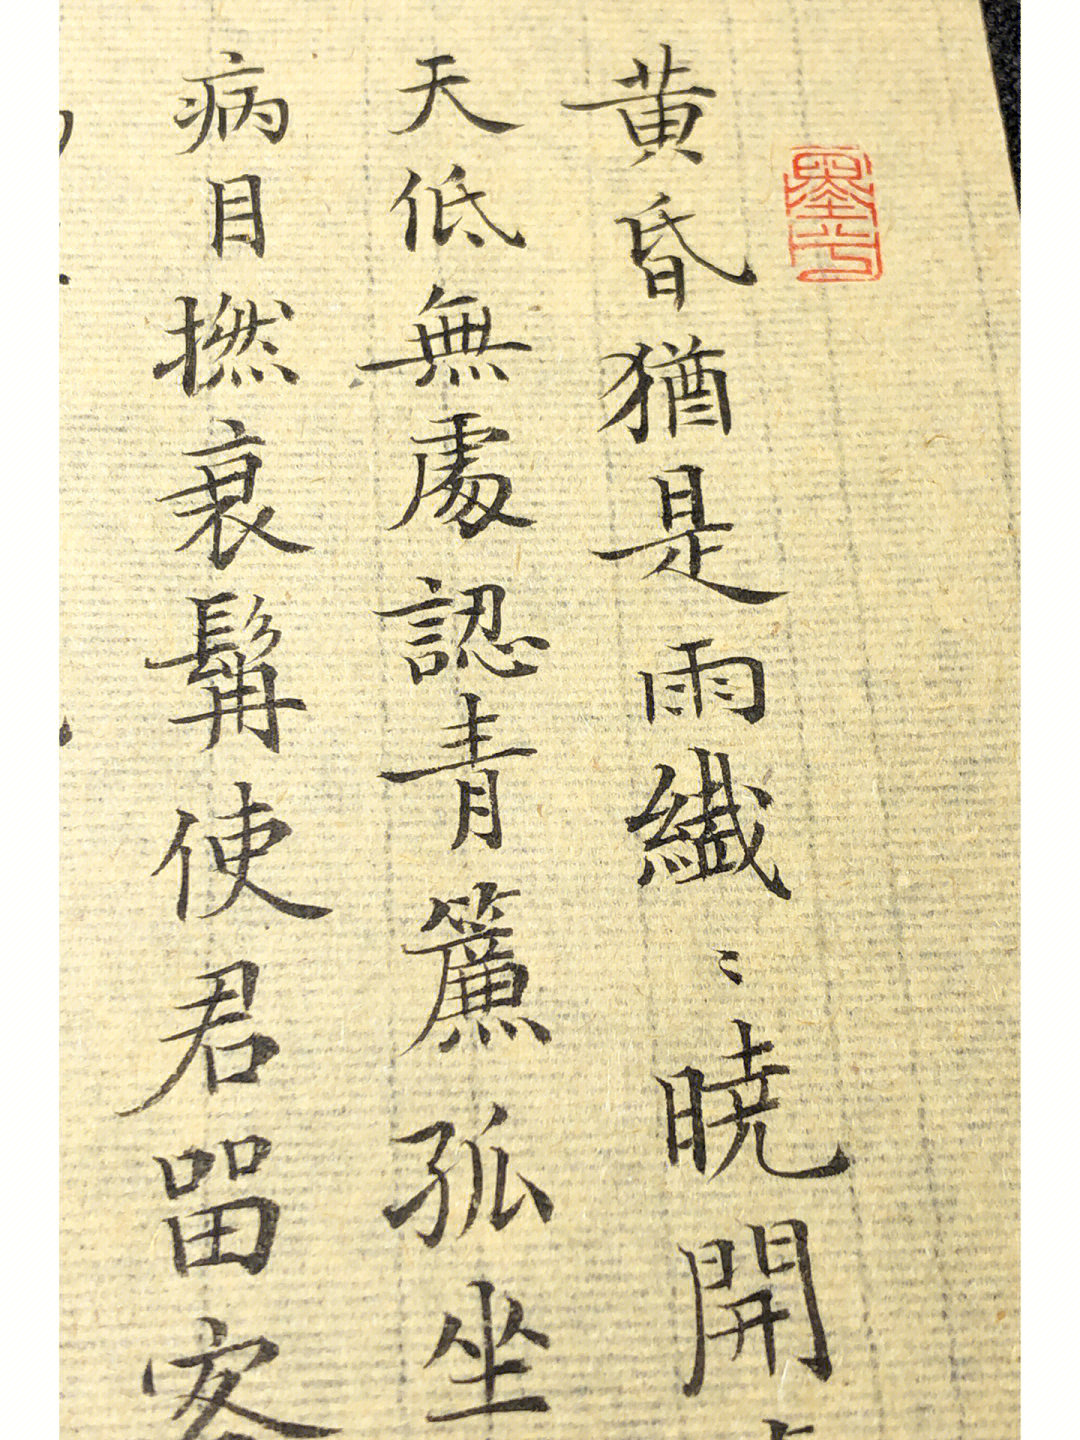 黄昏猶是雨纖〻暁開
天低無處認青簾孤坐
病目撚衰髯使君留客